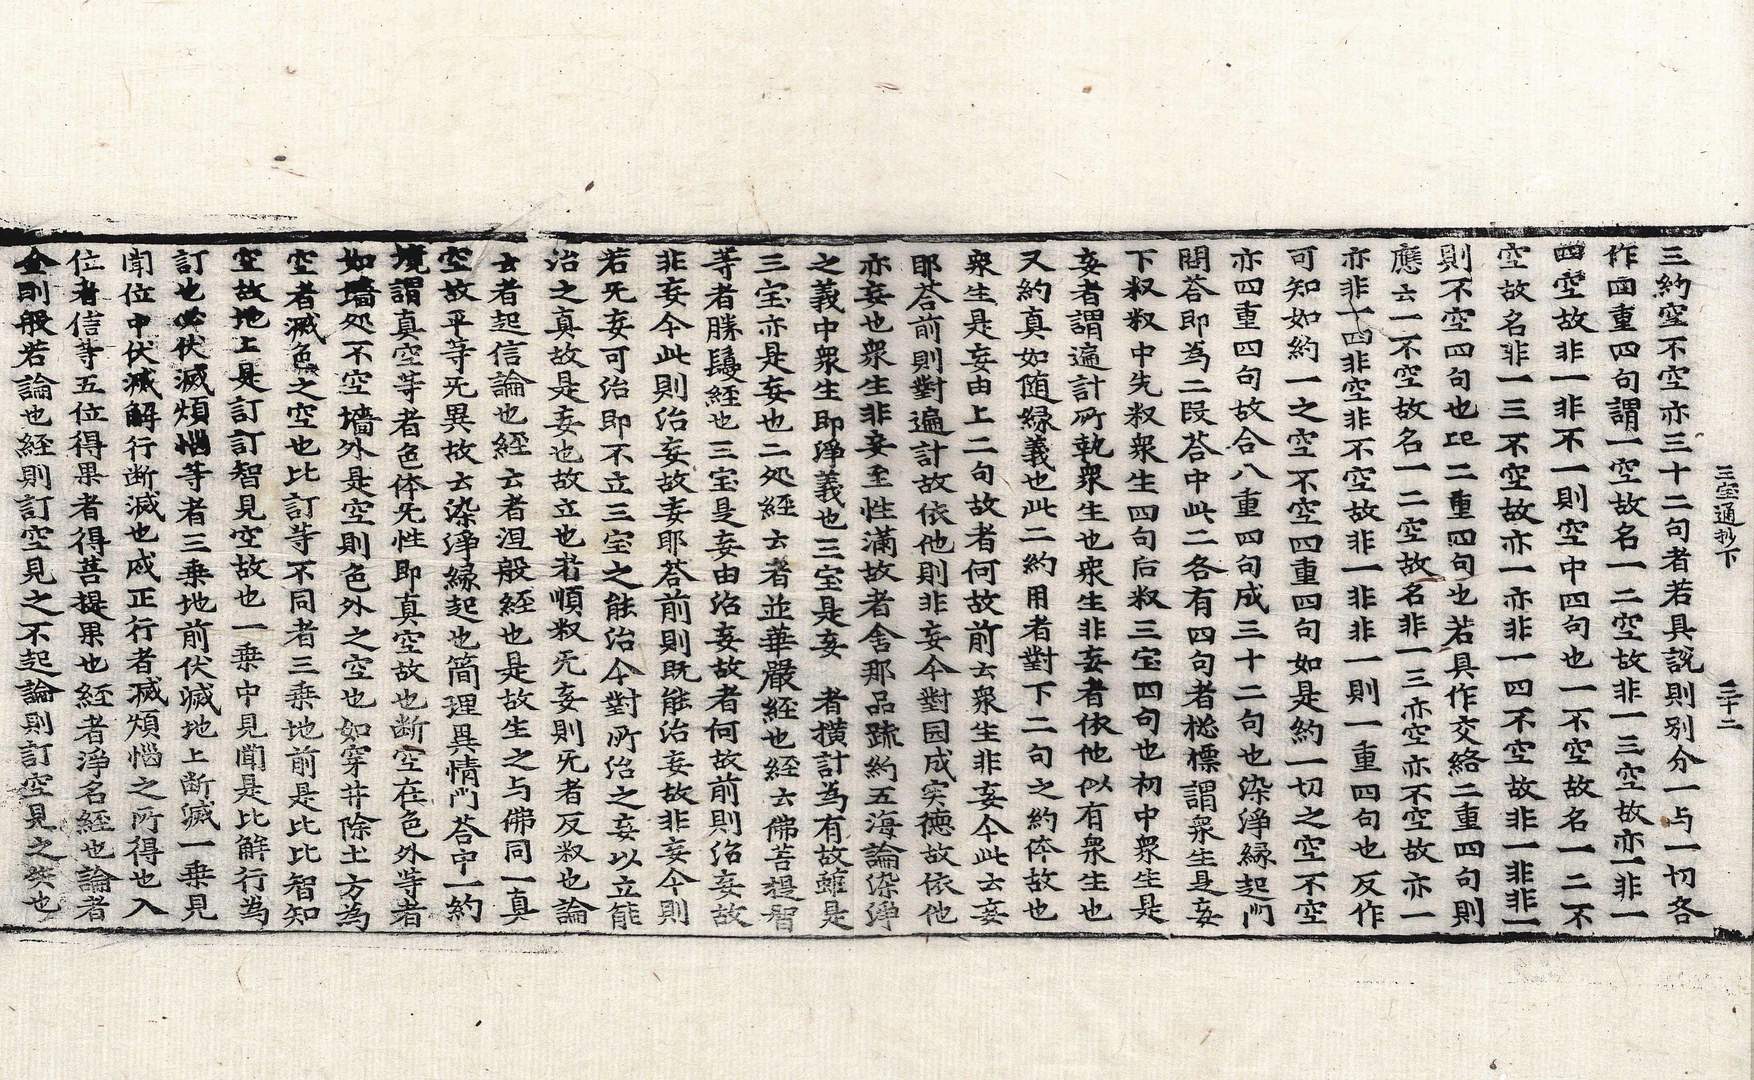 三宝通抄下　三十二
三約空不空亦三十二句者若具說則別分一与一切各
作四重四句謂一空故名一二空故非一三空故亦一非一
四空故非一非不一則空中四句也一不空故名一二不
空故名非一三不空故亦一亦非一四不空故非一非非一
則不空四句也起二重四句也若具作交絡二重四句則
應云一不空故名一二空故名非一三亦空亦不空故亦一
亦非一四非空非不空故非一非非一則一重四句也反作
可知如約一之空不空四重四句如是約一切之空不空
亦四重四句故合八重四句成三十二句也染淨縁起門
問荅即為二段荅中此二各有四句者摠標謂衆生是妄
下叙叙中先叙衆生四句后叙三宝四句也初中衆生是
妄者謂遍計所執衆生也衆生非妄者依他似有衆生也
又約真如随縁義也此二約用者對下二句之約体故也
衆生是妄由上二句故者何故前云衆生非妄今此云妄
耶荅前則對遍計故依他則非妄今對圓成実德故依他
亦妄也衆生非妄至性滿故者舍那品疏約五海論染淨
之義中衆生即淨義也三宝是妄　者撗計為有故雖是
三宝亦是妄也二処経云者並華嚴経也経云佛菩提智
等者勝鬘経也三宝是妄由治妄故者何故前則治妄故
非妄今此則治妄故妄耶荅前則旣能治妄故非妄今則
若旡妄可治即不立三宝之能治今對所治之妄以立能
治之真故是妄也故立也者順叙旡妄則旡者反叙也論
云者起信論也経云者涅般経也是故生之与佛同一真
空故平等旡異故云染淨縁起也簡理異情門荅中一約
境謂真空等者色体旡性即真空故也断空在色外等者
如墻処不空墻外是空則色外之空也如穿井除土方為
空者滅色之空也比訂等不同者三乗地前是比比智知
空故地上是訂訂智見空故也一乗中見聞是比解行為
訂也必伏滅煩惱等者三乗地前伏滅地上断滅一乗見
聞位中伏滅解行断滅也成正行者滅煩惱之所得也入
位者信等五位得果者得菩提果也経者淨名経也論者
金則般若論也経則訂空見之不起論則訂空見之失也